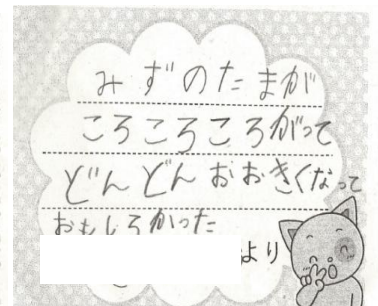 みずのたまが
ころころころがって
どんどんおおきくなって
おもしろかった
より